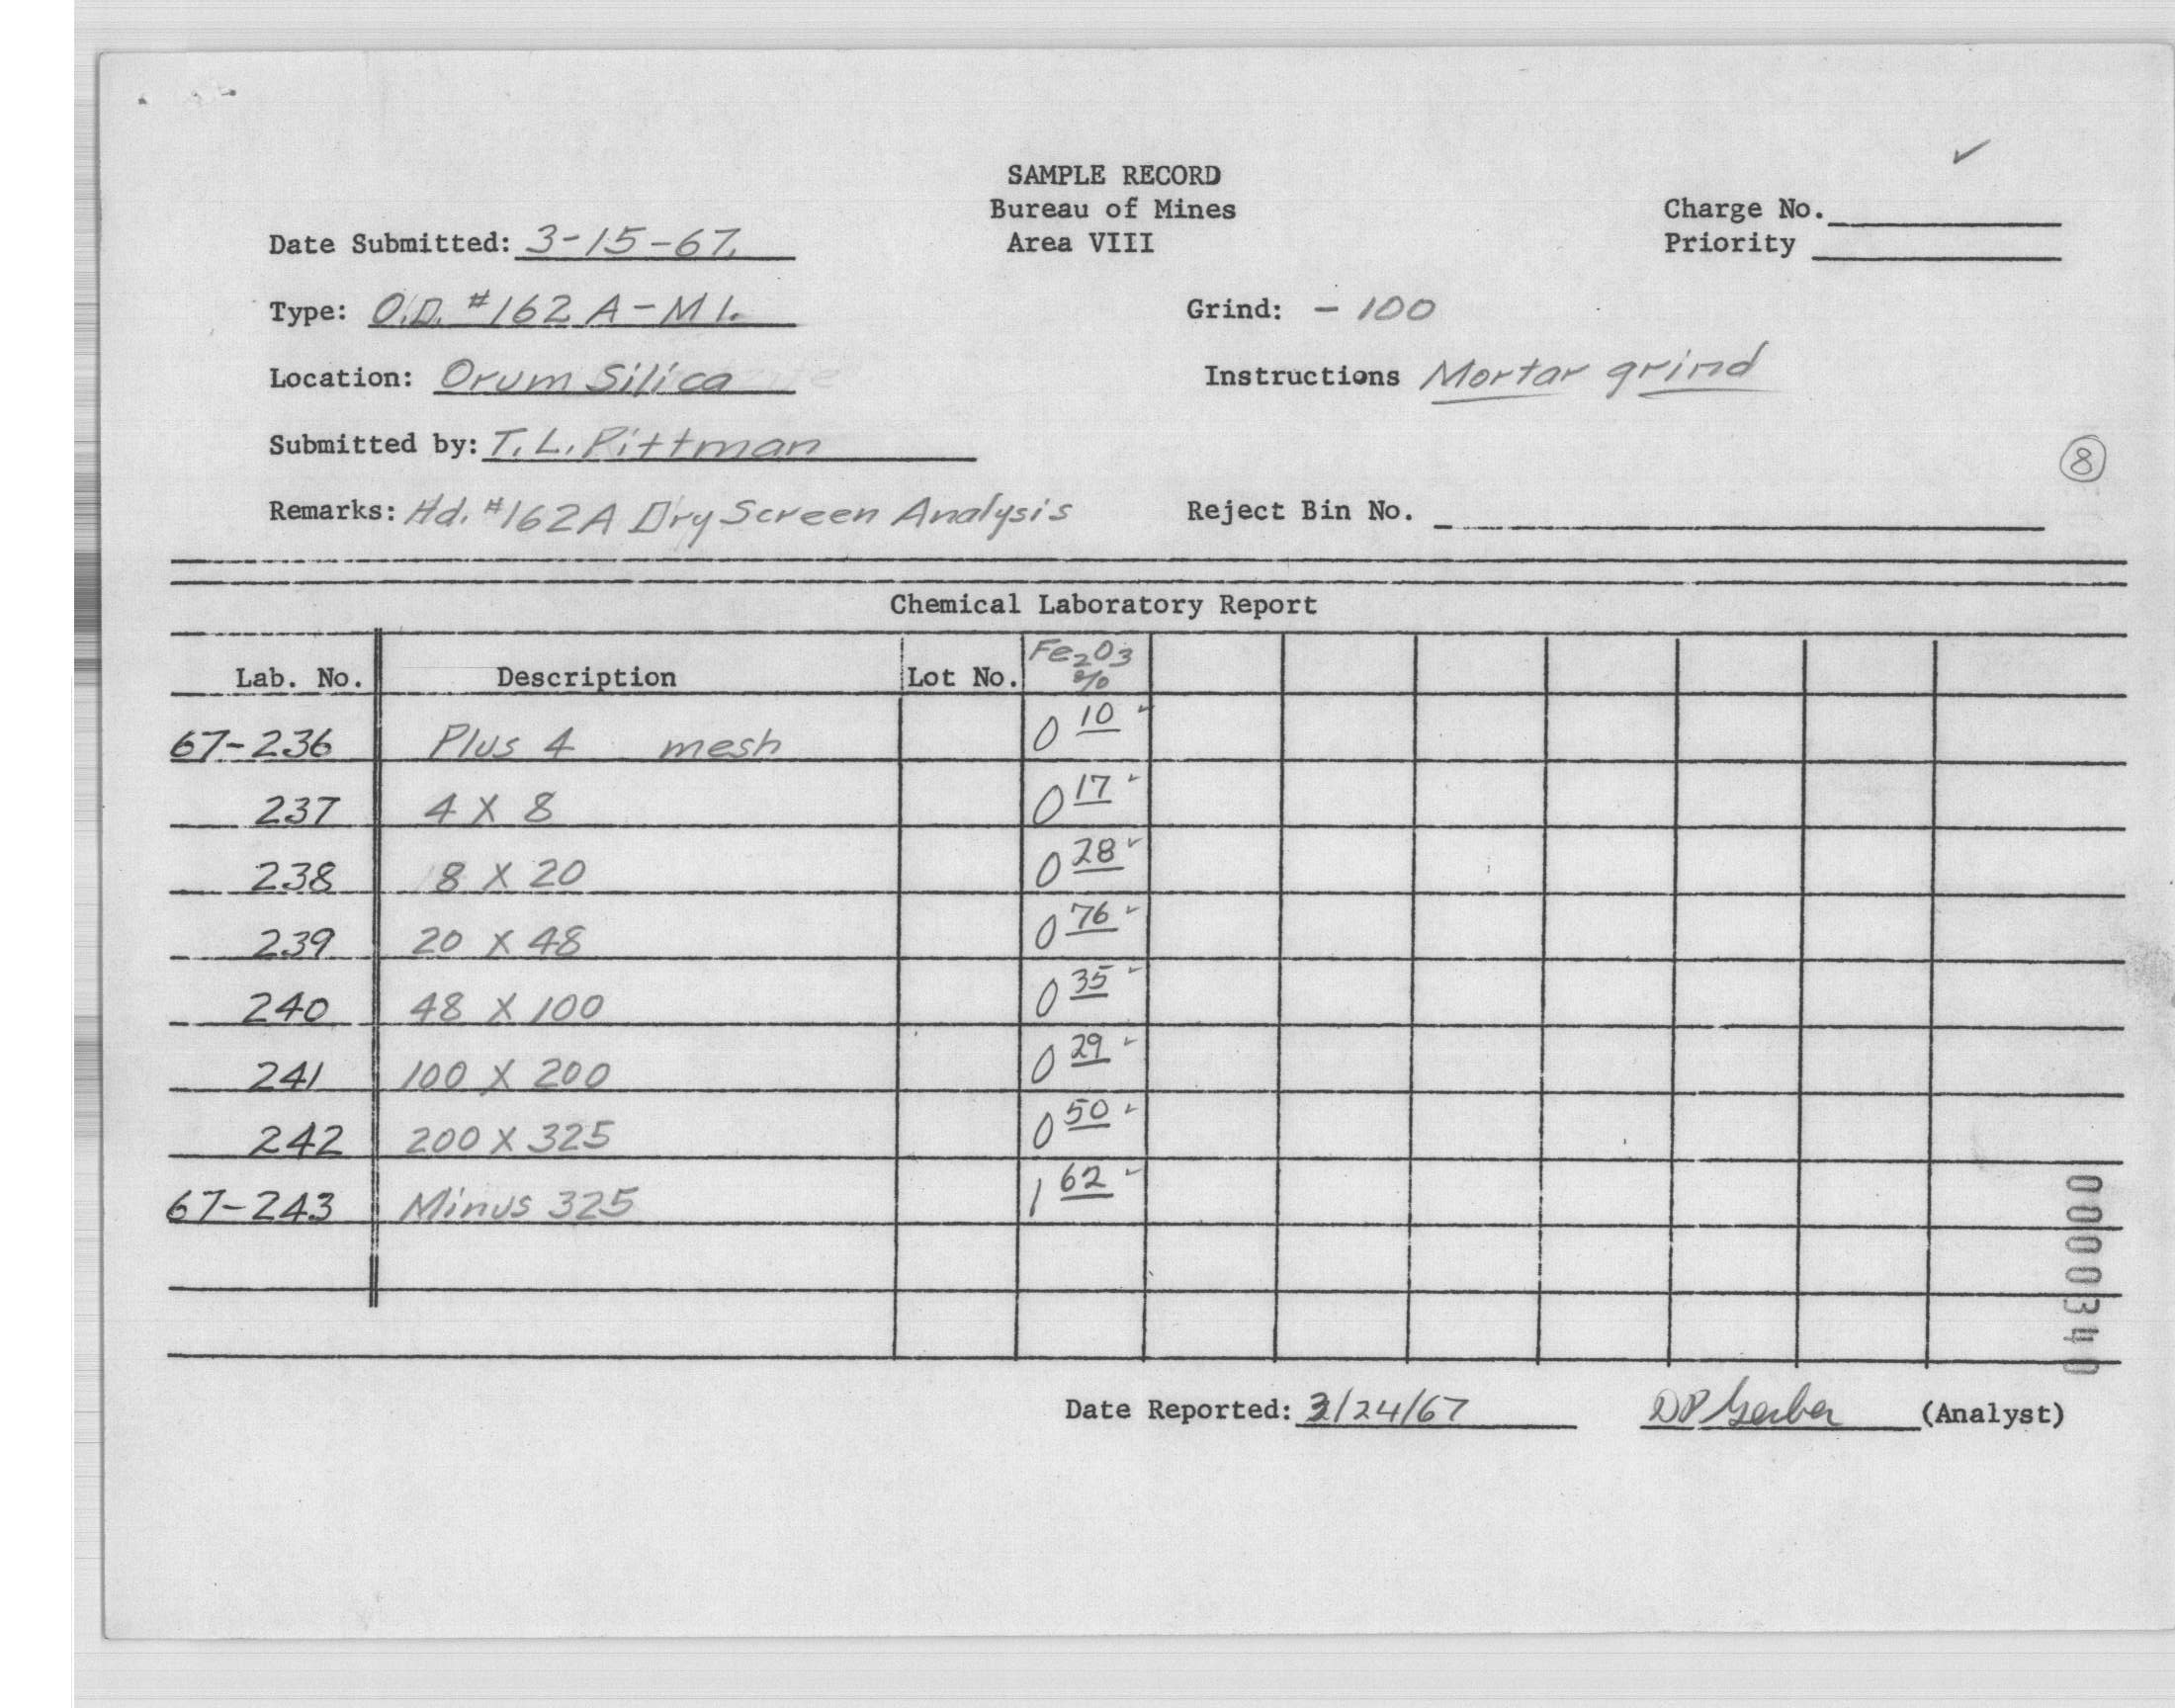 SAMPLE RECORD
Bureau of Mines
Area VIII
Charge No.
Priority
Date Submitted: 3-15-67.
Type: O.D. #162 A-M1.
Grind: - 100
Location: Orum Silica
Instructions Mortar grind
Submitted by: T. L. Pittman
8
Remarks: Hd. #162A Dry Screen Analysis
Reject Bin No.
Chemical Laboratory Report
Lab. No. Description Lot No. Fe2O3 %
67-236 Plus 4 mesh 0 10
237 4 X 8 0 17
238 8 X 20 0 28
239 20 X 48 0 76
240 48 X 100 0 35
241 100 X 200 0 29
242 200 X 325 0 50
67-243 Minus 325 1 62
0000340
Date Reported: 3/24/67 DP Gerber (Analyst)